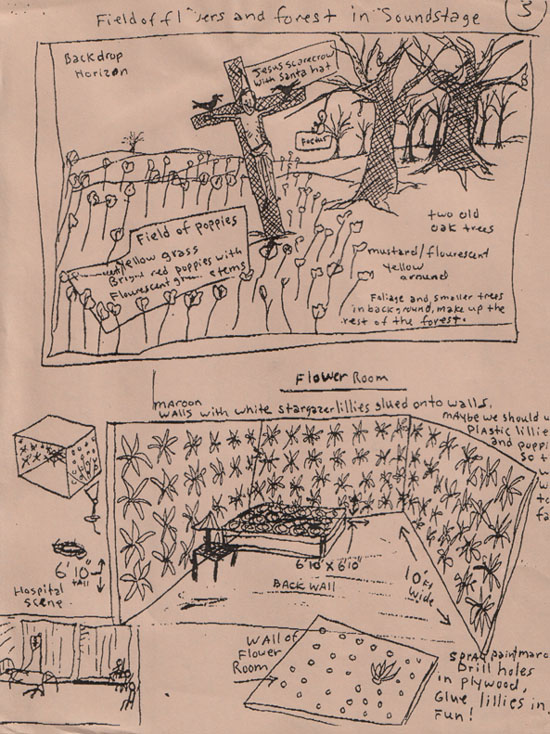 Field of fl ers and forest in Soundstage
3
Backdrop
Horizon
Jesus scarecrow
with Santa hat
Foetus
two old
oak trees
Field of poppies
yellow grass
Bright red poppies with
Flourescent green stems
mustard/flourescent
yellow
around
Foliage and, smaller trees
in background, make up the
rest of the forest.
Flower Room
maroon
walls with white stargazer lillies glued onto walls.
maybe we should u
plastic lillie
and poppi
so t
6'10"
tall
Hospital
scene
6'10 x 6'10"
BACK WALL
10 Ft
wide
Wall of
Flower
Room
Spray paint maro
Drill holes
in plywood,
Glue lillies in
Fun!